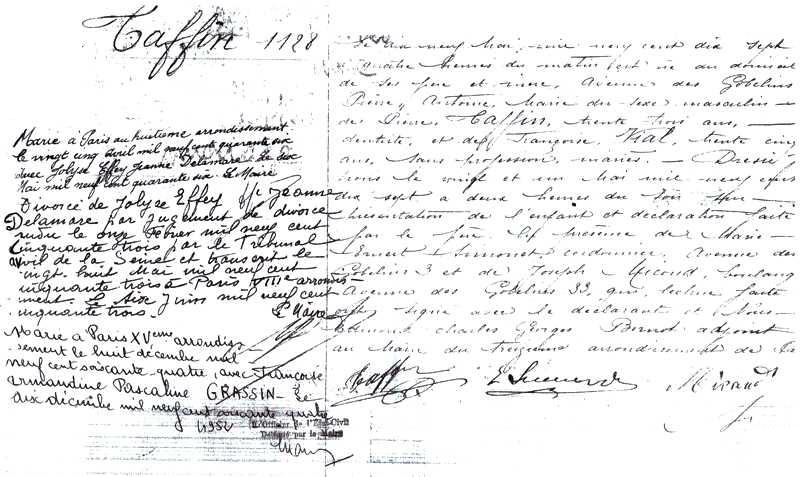 Taffin 1128
Marié à Paris au huitième arrondissement
le vingt cinq avril mil neuf cent quarante six
avec Jolyse Effey Jeanne Delamare. Le six
Mai mil neuf cent quarante six. Le Maire
Divorcé de Jolyse Effey Jeanne
Delamare par Jugement de divorce
rendu le onze Février mil neuf cent
cinquante trois par le Tribunal
civil de la Seine et transcrit le
vingt huit Mai mil neuf cent
cinquante trois à Paris VIIIe arrondis-
sement. Le six Juin mil neuf cent
cinquante trois. Le Maire
Marié à Paris XVème arrondis
sement le huit décembre mil
neuf cent soixante quatre, avec Françoise
Armandine Pascaline GRASSIN - Le
dix décembre mil neuf cent soixante quatre
L'Officier de l'Etat-Civil
Délégué par le Maire
Le dix neuf Mai, mil neuf cent dix sept
à quatre heures du matin est né au domicile
de ses père et mère, Avenue des Gobelins
Pierre, Antoine, Marie du sexe masculin
de Pierre, Taffin, trente trois ans, —
dentiste, et de Françoise, Vial, trente cinq
ans, sans profession, mariés. — Dressé
nous le vingt et un Mai mil neuf cent
dix sept à deux heures du soir sur
présentation de l'enfant et déclaration faite
par le père. En présence de Marie
Ernest cordonnier, Avenue des
Gobelins 3 et de Joseph
Avenue des Gobelins 33, qui, lecture faite
ont signé avec le déclarant et Nous
Charles Georges adjoint
au Maire du treizième arrondissement de
Taffin